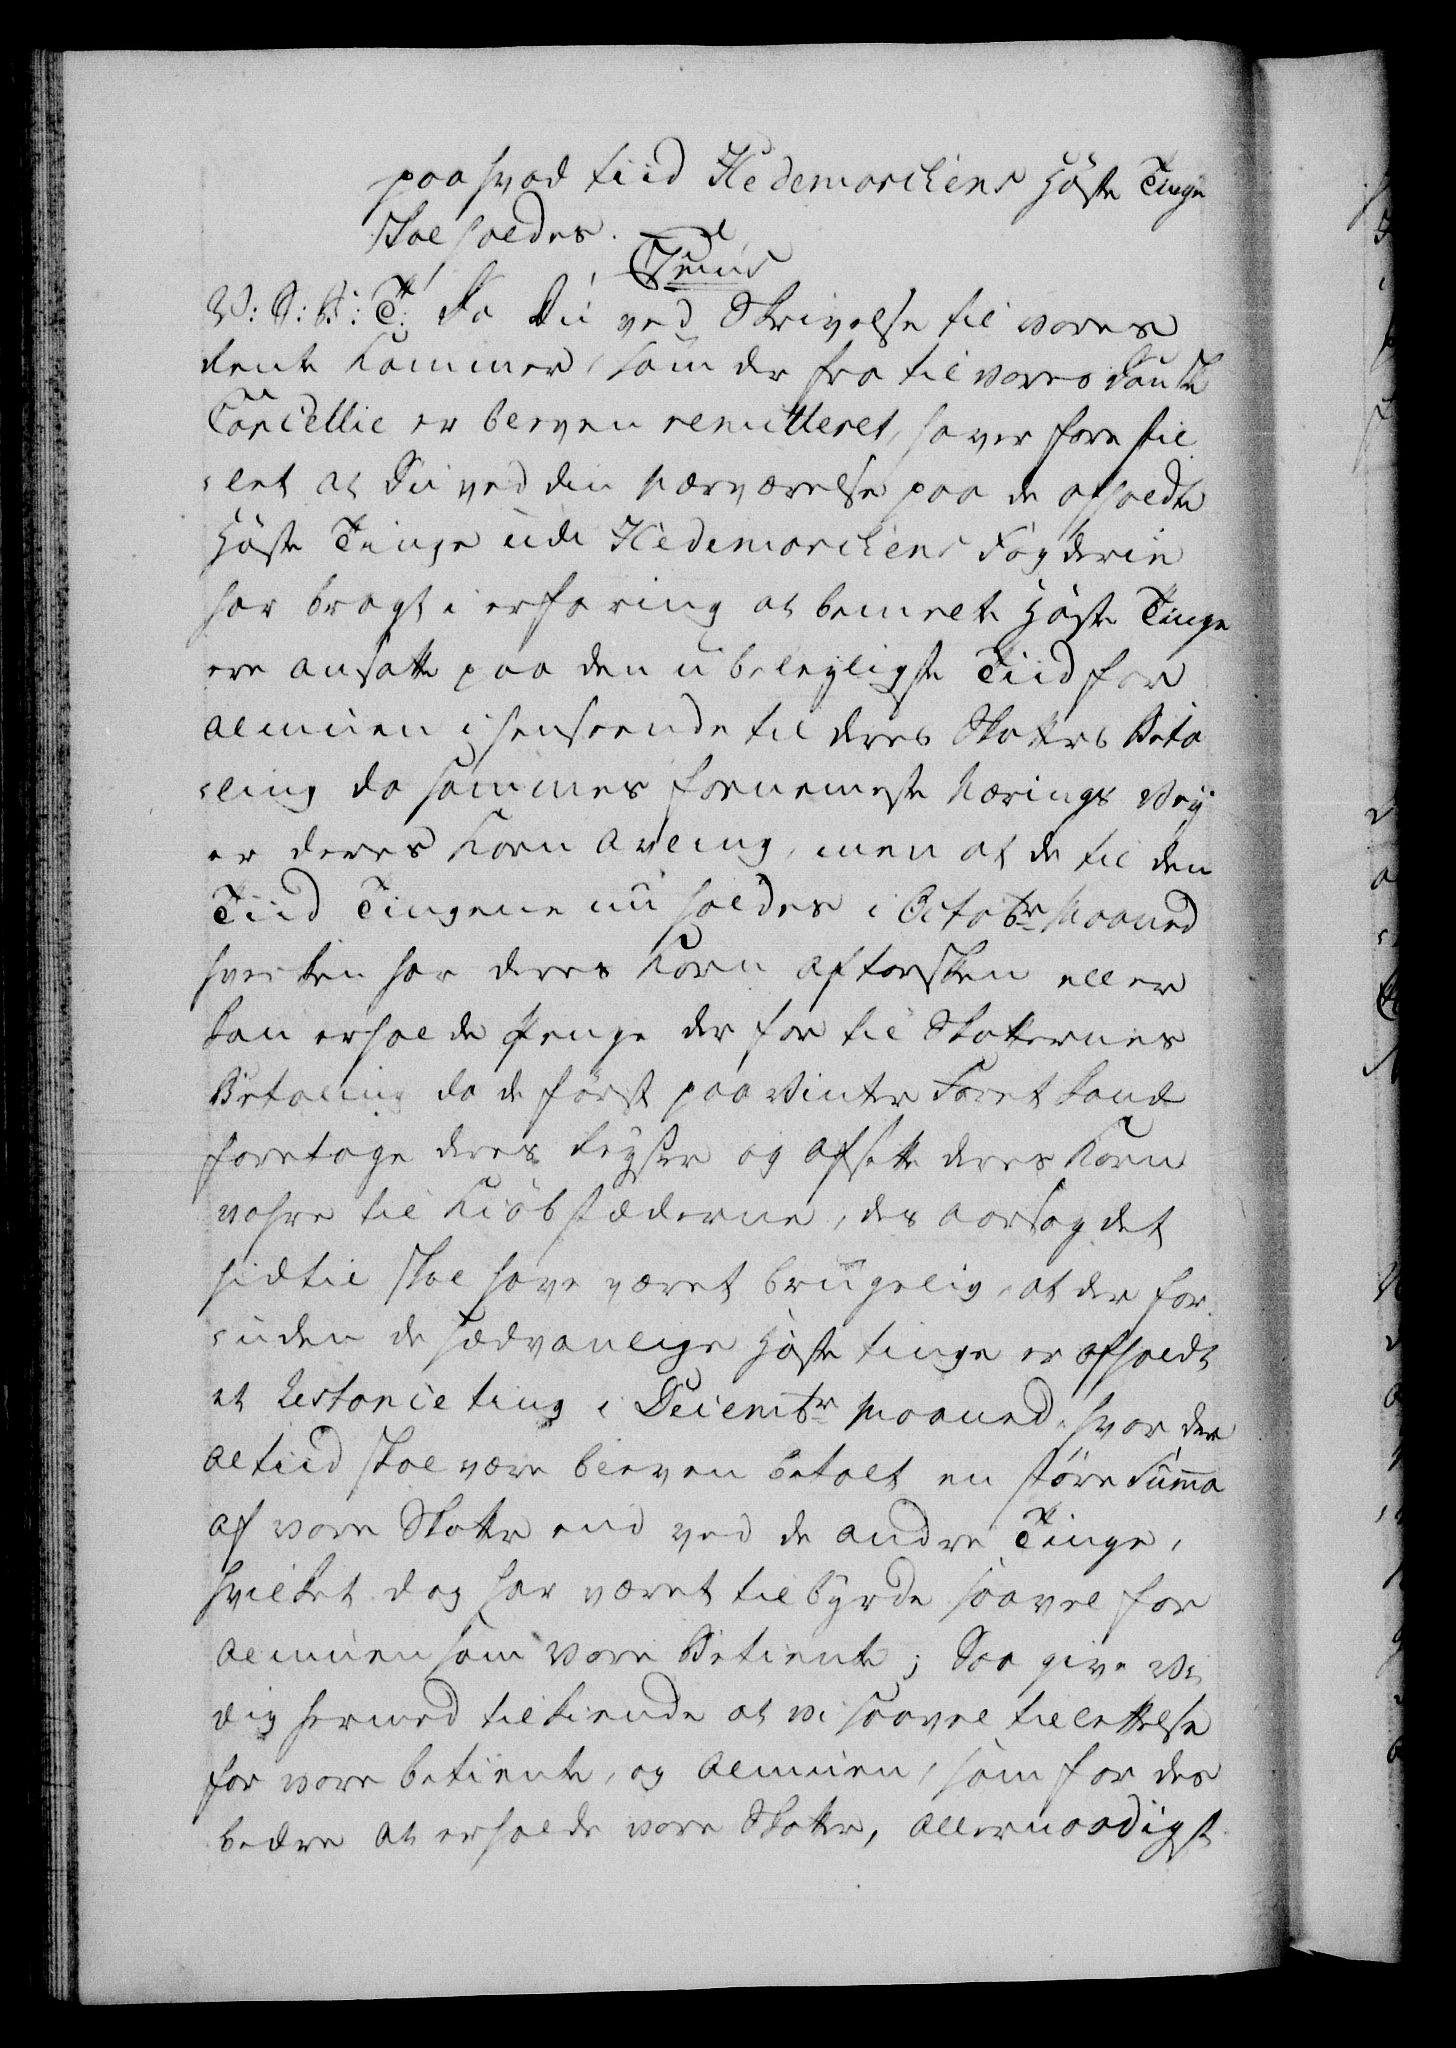 paa hvad tiid Hedemarckens Höste Tinge
skal holdes.
V: S: G: T: Da Du ved Skrivelse til vores
Rente Kammer, som der fra til vores Danske
Cancellie er bleven remitteret, haver forestil
-let at Du ved din Nærværelse paa de afholdte
Höste Tinge udi Hedemarckens Fogderie
har bragt i erfaring at bemelte Höste Tinge
ere ansatte paa den ubeleyligste Tiid for
Almuen i henseende til deres Skatters Beta
-ling da sammes fornemeste Nærings Vej
er deres Korn Avling, men at de til den
Tiid Tingene nu holdes i Octobr Maaned
hverken har deres Korn aftorsken eller
kan erholde Penge der for til Skatternes
Betaling da de först paa Vinter Föret kand
foretage deres Reyser og afsætte deres Korn
vahre til Kiöbstæderne, des aarsag det
hidtil skal have været brugelig, at der for
-uden de sædvanlige Höste tinge er afholdt
et Restancie ting i Decembr Maaned, hvor der
altiid skal være bleven betalt en störe Summa
af vore Skatter end ved de andre Tinge,
hvilket dog har været til byrde saavel for
Almuen som vore Betiente; Saa give Vi
dig hermed tilkiende at vi saavel til lettelse
for vore betiente, og Almuen, som for des
bedre at erholde vore Skatter, allernaadigst